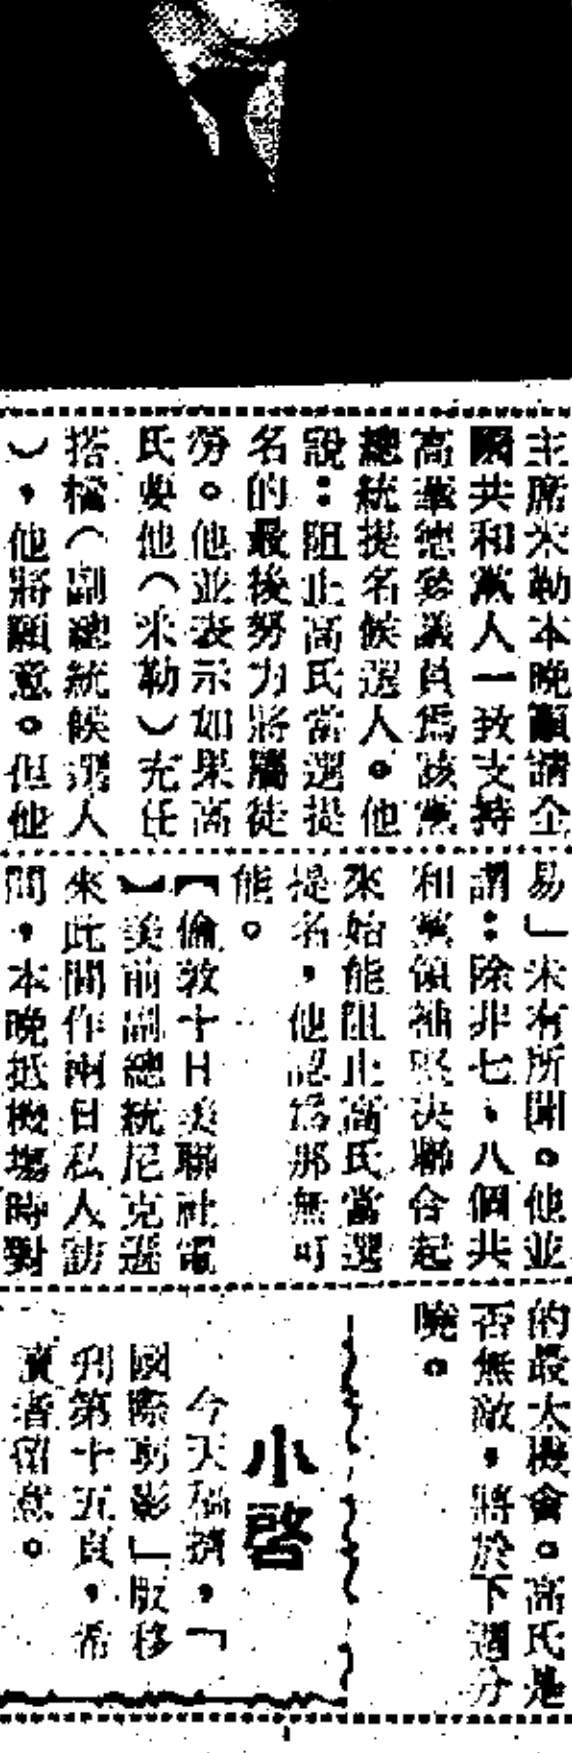 主席米勒本晚籲請全
國共和黨人一致支持
高華德參議員爲該黨
總統提名候選人。他
說：阻止高氏當選提
名的最後努力將屬徒
勞。他並表示如果高
氏要他（米勒）充任
搭檔（副總統候選人
），他將願意。但他
易」未有所聞。他並
謂：除非七、八個共
和黨領袖堅決聯合起
來始能阻止高氏當選
提名，他認爲那無可
能。
【倫敦十日美聯社電
】美前副總統尼克遜
來此間作兩日私人訪
問，本晚抵機場時對
的最大機會。高氏是
否無敵，將於下週分
曉。
小啓
今天稿擠，「
國際剪影」版移
刋第十五頁，希
讀者留意。